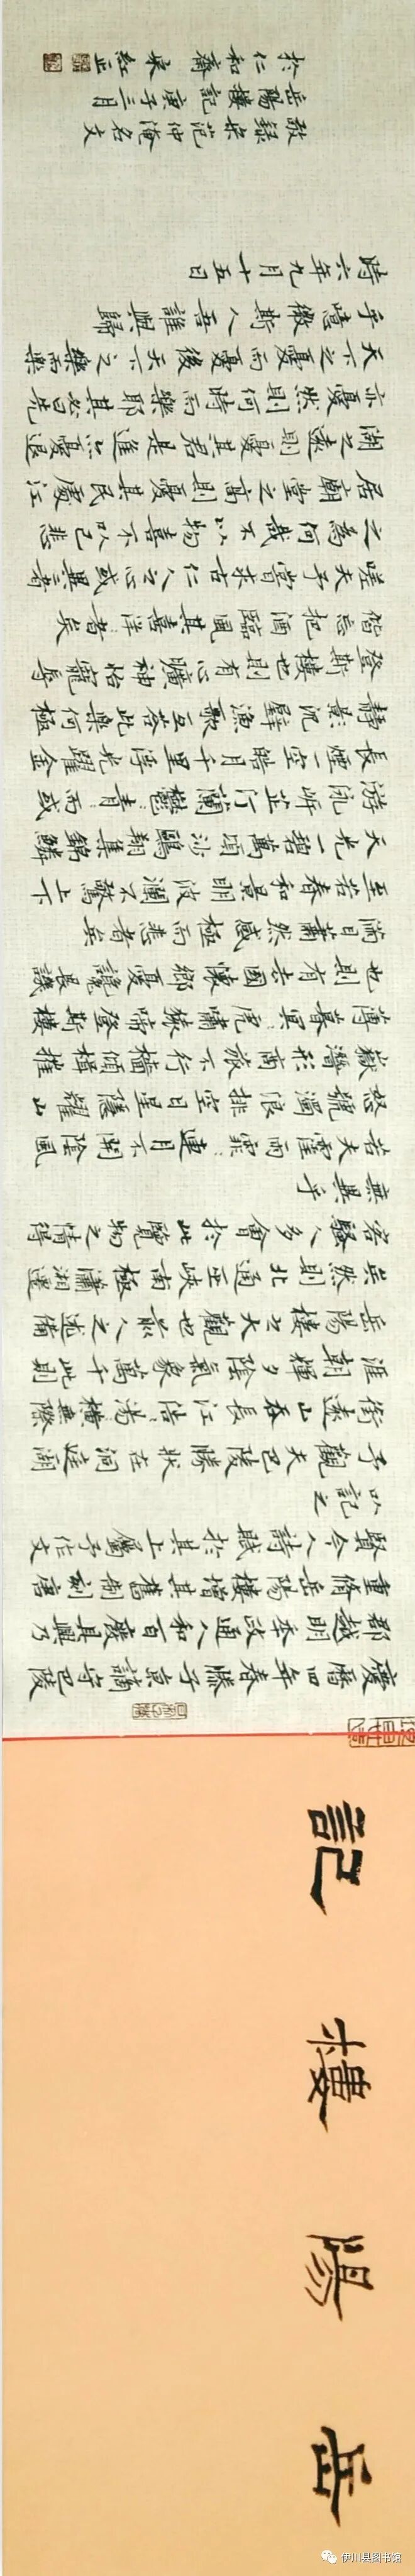 岳陽樓記
慶曆四年春滕子京謫守巴陵
郡越明年政通人和百廢具興乃
重脩岳陽樓增其舊制刻唐
賢今人詩賦於其上屬予作文
以記之
予觀夫巴陵勝狀在洞庭湖
銜遠山吞長江浩湯々橫無際
涯朝輝夕陰氣象萬千此則
岳陽樓之大觀也前人之述備
矣然則北通巫峽南極瀟湘遷
客騷人多會於此覽物之情得
無異乎
若夫霪雨霏々連月不開陰風
怒號濁浪排空日星隱耀山
嶽潛形商旅不行檣傾楫摧
薄暮冥々虎嘯猿啼登斯樓
也則有去國懷鄉憂讒畏譏
滿目蕭然感極而悲者矣
至若春和景明波瀾不驚上下
天光一碧萬頃沙鷗翔集錦鱗
游泳岸芷汀蘭鬱々青々而或
長煙一空皓月千里浮光躍金
靜影沉璧漁歌互答此樂何極
登斯樓也則有心曠神怡寵辱
偕忘把酒臨風其喜洋々者矣
嗟夫予嘗求古仁人之心或異二者
之為何哉不以物喜不以己悲
居廟堂之高則憂其民處江
湖之遠則憂其君是進亦憂退
亦憂然則何時而樂耶其必曰先
天下之憂而憂後天下之樂而樂
乎噫微斯人吾誰與歸
時六年九月十五日
敬錄宋范仲淹名文
岳陽樓記庚子三月
於仁和齋 宋紅正
伊川县图书馆